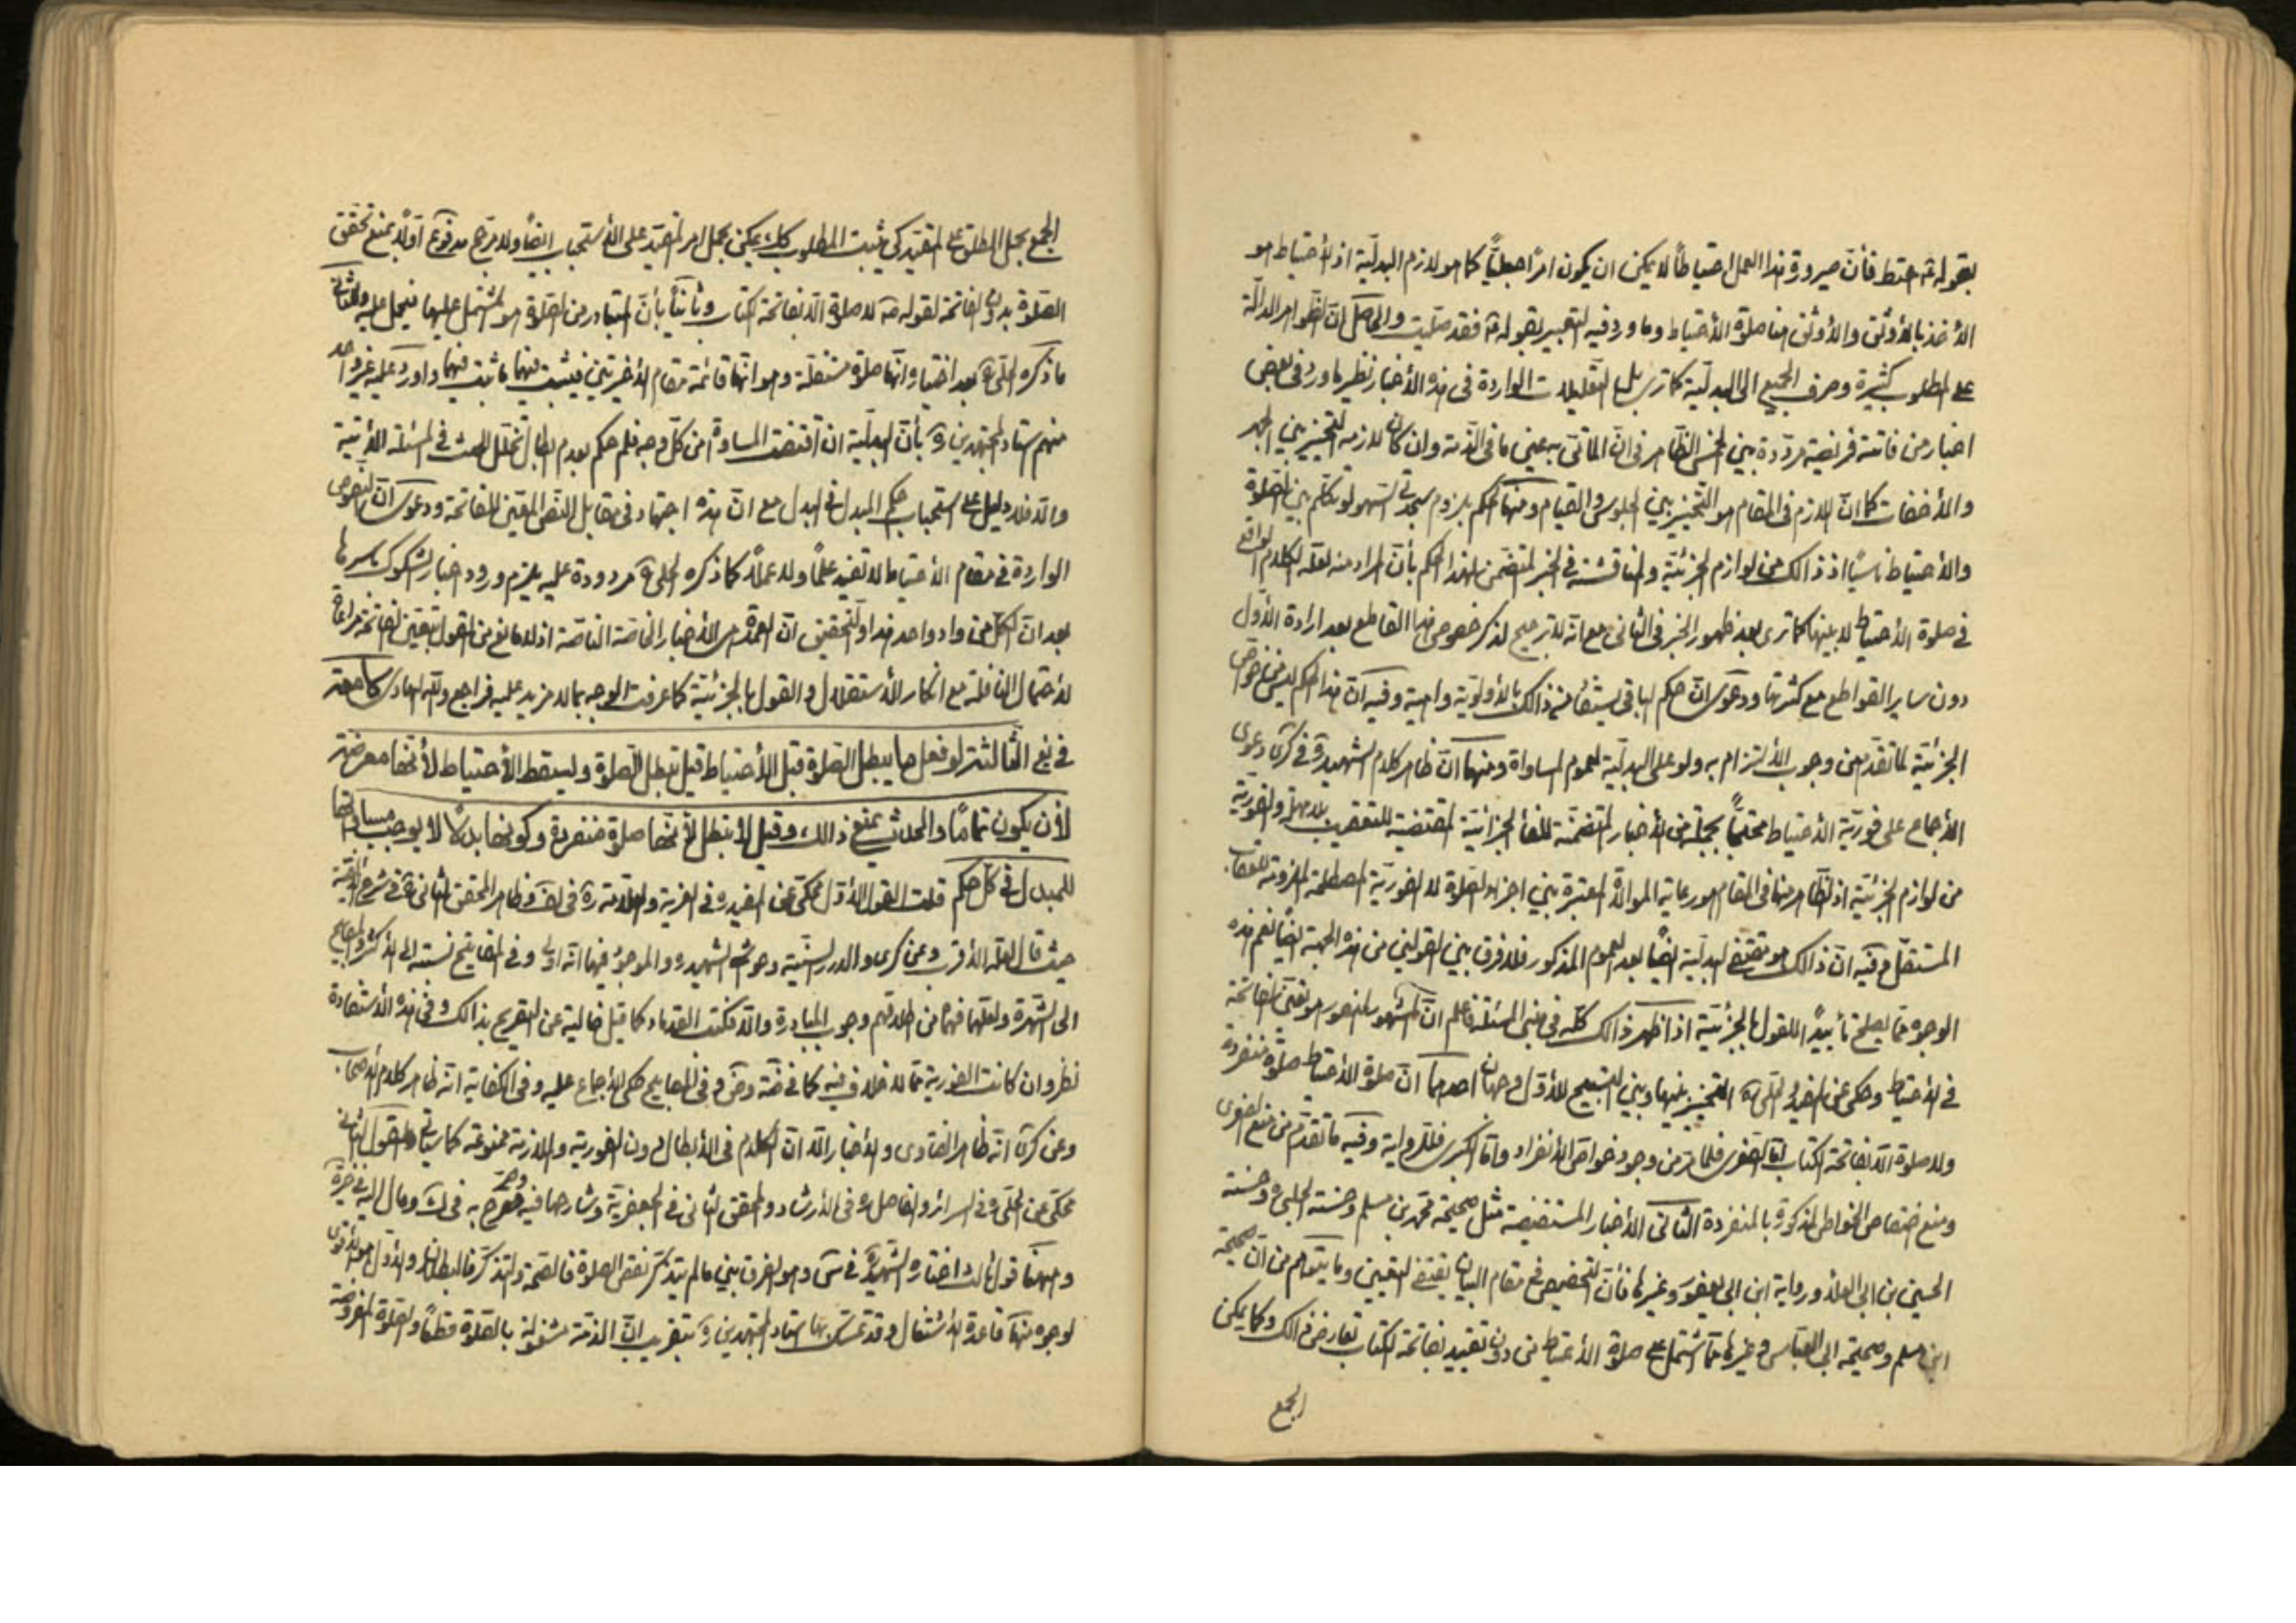 بقوله ع احتط فأن صيرورة هذا العمل احتياطاً لا يمكن ان يكون امراً جعلياً كما هو لازم البدلية اذ الأحتياط هو
الأخذ بالأوثق والأوثق صلوة الأحتياط وما ورد فيه التعبير بقوله ع فقد صليت والحاصل ان الظواهر الدالة
على المطلوب كثيرة وصرف الجميع الى البدلية كما ترى بل التعليلات الواردة في هذه الأخبار نظير ما ورد في بعض
اخبار من فاتته فريضة مرددة بين الخمس الظاهر في ان المأتى به عين ما في الذمة وان كان لازمه التخيير بين الجهر
والأخفات كما ان اللازم في المقام هو التخيير بين الجلوس والقيام ومنها الحكم بلزوم سجدتى السهو لو تكلم بين الصلوة
والأحتياط ناسياً اذ ذالك من لوازم الجزئية والمناقشة في الخبر المتضمن لهذا الحكم بأن المراد منه لعله الكلام الواقع
في صلوة الأحتياط لا بينها كما ترى بعد ظهور الخبر في الثاني مع انه لا ترجيح لذكر خصوص هذا القاطع بعد ارادة الأول
دون ساير القواطع مع كثرتها ودعوى ان حكم الباقي يستفاد من ذالك بالأولوية واهية وفيه ان هذا الحكم ليس من خواص
الجزئية لما تقدم من وجوب الألتزام به ولو على البدلية لعموم المساواة ومنها ان ظاهر كلام الشهيد ره في كرى دعوى
الأجماع على فورية الأحتياط محتجاً بجملة من الأخبار المتضمنة للفاء الجزائية المقتضية للتعقيب بلا مهلة والفورية
من لوازم الجزئية اذ الظاهر منها في المقام هو رعاية الموالاة المعتبرة بين اجزاء الصلوة لا الفورية المصطلحة
المستقل وفيه ان ذالك هو مقتضى البدلية ايضاً بعد العموم المذكور فلا فرق بين القولين من هذه الجهة ايضاً نعم هذه
الوجوه مما يصلح تأييداً للقول بالجزئية اذا ظهر ذالك كله في مبنى المسئلة فاعلم ان المشهور المنصور هو تعين الفاتحة
في الأحتياط وحكى عن المفيد والحلي ره التخيير بينها وبين التسبيح للأول وجهان احدهما ان صلوة الأحتياط صلوة منفردة
ولا صلوة الا بفاتحة الكتاب اما الصغرى فلما مر من وجود خواص الأنفراد واما الكبرى فللرواية وفيه ما تقدم من منع الصغرى
ومنع اختصاص الخواص المذكورة بالمنفردة الثاني الأخبار المستفيضة مثل صحيحة محمد بن مسلم وحسنة الحلبي وحسنة
الحسين بن ابى العلاء ورواية ابن ابى يعفور وغيرها فأن التخصيص في مقام البيان يقتضى التعيين وما يتوهم من ان صحيحة
ابن مسلم وصحيحة ابى العباس وغيرها مما اشتمل على صلوة الأحتياط من دون تقييد بفاتحة الكتاب تعارض ذالك وكما يمكن
الجمع
الجمع بحمل المطلق على المقيد كي يثبت المطلوب كذلك يمكن بحمل امر المقيد على الأستحباب ايضاً ولا ترجيح مدفوع اولاً بمنع تحقق
الصلوة بدون الفاتحة لقوله ص لا صلوة الا بفاتحة الكتاب وثانياً بأن المتبادر من الصلوة هو المشتمل عليها فيحمل عليه وللثاني
ما ذكره الحلي ره بعد اختياره انها صلوة مستقلة وهو انها قائمة مقام الأخيرتين فيثبت فيهما ما ثبت فيهما واورد عليه غير واحد
منهم استاد المجتهدين ره بأن البدلية ان اقتضت المساواة من كل وجه فلم حكم بعدم ابطال تخلل الحدث في المسئلة الأتية
والا فلا دليل على استحباب حكم المبدل في البدل مع ان هذه اجتهاد في مقابل النص المعين للفاتحة ودعوى ان النصوص
الواردة في مقام الأحتياط لا تفيد علماً ولا عملاً كما ذكره الحلي ره مردودة عليه بلزوم ورود اخبار الشكوك باسرها
بعد ان الكل من واد واحد هذا والتحقيق ان العمدة هي الأخبار الخاصة الناصة اذ لا مانع من القول بتعين الفاتحة مراعاة
لأحتمال النافلة مع انكار الأستقلال والقول بالجزئية كما عرفت الوجه بما لا مزيد عليه فراجع والله الهادى
الثالثة لو فعل ما يبطل الصلوة قبل الأحتياط قيل تبطل الصلوة ويسقط الأحتياط لأنها معرضة
لأن يكون تماماً والحدث يمنع ذالك وقيل لا تبطل لأنها صلوة منفردة وكونها بدلاً لا يوجب مساواتها
للمبدل في كل حكم قلت القول الأول محكى عن المفيد ره في الغرية والعلامة ره في لف وظاهر المحقق الثاني ره في شرح الألفية
حيث قال لعله الأقرب وعن كرى والدرر السنية وحواشى الشهيد ره والموجز فيها انه اولى وفي المفاتيح نسبته الى الأكثر والمصابيح
الى الشهرة ولعلهما فهما من اطلاقهم وجوب المبادرة والا فكتب القدماء كما قيل خالية عن التصريح بذالك وفي هذه الأستفادة
نظر وان كانت الفورية مما لا خلاف فيه كما في ضة وض وفي المصابيح حكى الأجماع عليه وفي الكفاية انه ظاهر كلام الأصحاب
وعن كرى انه ظاهر الفتاوى والأخبار الا ان الكلام في الأبطال دون الفورية والملازمة ممنوعة كما سيأتي والقول الثاني
محكى عن الحلي ره في السرائر والفاضل ره في الأرشاد والمحقق الثاني في الجعفرية وشارحها فيه وصرح به في ك ومال اليه في خيرة
وههنا قول ثالث اختاره الشهيد ره في س وهو الفرق بين ما لم يتذكر نقص الصلوة فالصحة والتذكر فالبطلان والأول هو الأقوى
لوجوه منها قاعدة الأشتغال وقد تمسك بها استاد المجتهدين ره بتقريب ان الذمة مشغولة بالصلوة قطعاً والصلوة المفروضة